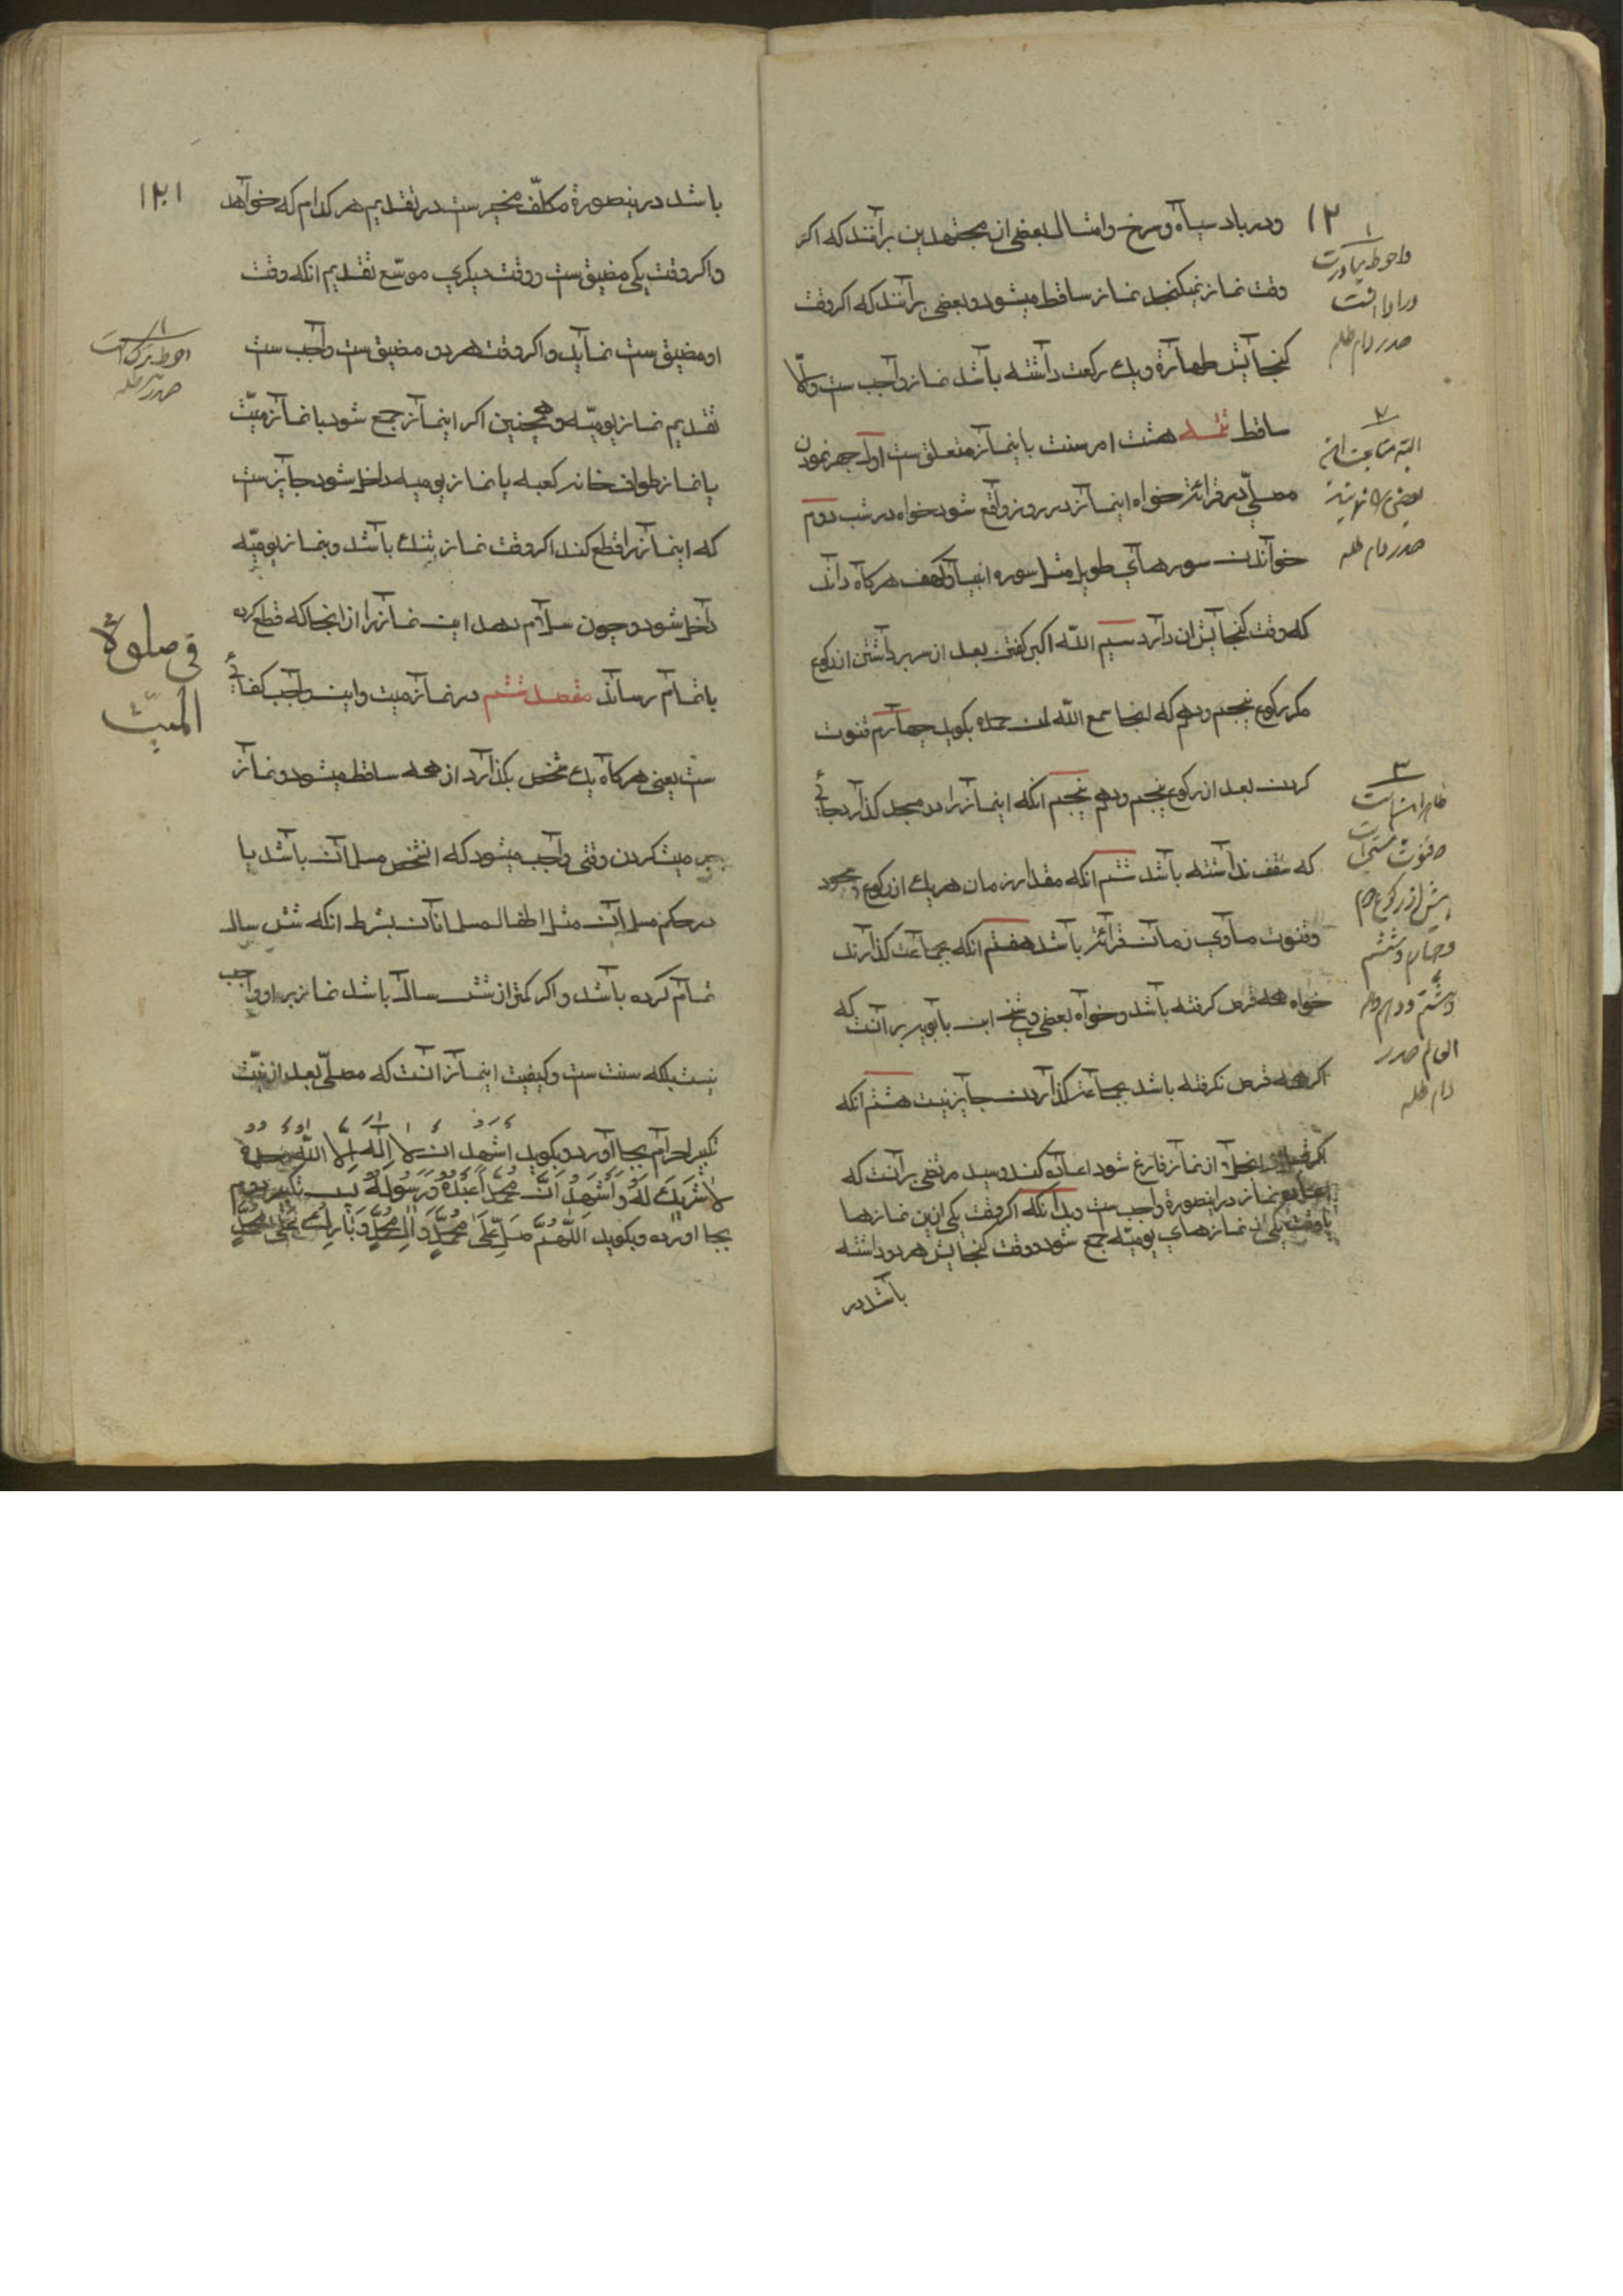 ١٢
ودر باد سیاه وسرخ وامثال بعضی از مجتهدین برآنند که اکر
وقت نماز نمیکنجد نماز ساقط میشود وبعضی برآنند که اکر وقت
کنجایش طهارة ویك رکعت داشته باشد نماز واجب ست والّا
ساقط تتمه هشت امر سنت باینماز متعلق ست اول جهر نمودن
مصلّی در قرائة خواه اینماز در روز واقع شود خواه در شب دوم
خواندن سورهای طویل مثل سوره انبیا وکهف هرکاه داند
که وقت کنجایش ان دارد سیم اللّه اکبر کفتن بعد از سر برداشتن از رکوع
مکر رکوع پنجم ودهم که اینجا سمع اللّه لمن حمده بکوید چهارم قنوت
کردن بعد از رکوع پنجم ودهم پنجم انکه اینماز را در مسجد کذارد بجائی
که سقف نداشته باشد ششم انکه مقدار زمان هریك از رکوع وسجود
وقنوت مساوی زمان قرائة باشد هفتم انکه بجماعت کذارند
خواه همه قرص کرفته باشد وخواه بعضی وشیخ ابن بابویه بر آنست که
اکر همه قرص نکرفته باشد بجماعت کذاردن جایز نیست هشتم انکه
اکر قبل از انجلا از نماز فارغ شود اعاده کند وسید مرتضی بر آنست که
اعاده نماز در اینصورة واجب ست وبدانکه اکر وقت یکی ازین نمازها
با وقت یکی از نمازهای یومیّه جمع شود ووقت کنجایش هر دو داشته
باشد در
١
واحوط مبادرت
در ادا است
صدر دام ظله
٢
صدر دام ظله
٣
ظاهرا
قنوت مستحب است
پیش از رکوع دوم
وچهارم وششم
وهشتم ودهم
صدر
دام ظله
١٢١
باشد درینصورة مکلّف مخیر ست در تقدیم هر کدام که خواهد
واکر وقت یکی مضیق ست ووقت دیکری موسّع تقدیم انکه وقت
او مضیق ست نماید واکر وقت هر دو مضیق ست واجب ست
تقدیم نماز یومیّه وهمچنین اکر اینماز جمع شود با نماز میّت
یا نماز طواف خانه کعبه یا نماز یومیه داخل شود جایز ست
که اینماز را قطع کند اکر وقت نماز تنك باشد وبنماز یومیّه
داخل شود وچون سلام دهد این نماز را از انجا که قطع کرده
باتمام رساند مقصد ششم در نماز میت واین واجب کفائی
ست یعنی هرکاه یك شخص بکذارد از همه ساقط میشود ونماز
بر میت کردن وقتی واجب میشود که انشخص مسلمان باشد یا
در حکم مسلمان مثل اطفال مسلمانان بشرط انکه شش سال
تمام کرده باشد واکر کمتر از شش سال باشد نماز بر او واجب
نیست بلکه سنت ست وکیفیت اینماز آنست که مصلّی بعد از نیّت
تکبیر احرام بجا آورد وبکوید اشهد ان لا اله الّا اللّه وحده
لا شَریك لَهُ وَاَشهَدُ اَنَّ مُحَمَّداً عَبدُهُ وَرَسُولُهُ پس تکبیر دوم
بجا اورده وبکوید اَللّهُمَّ صَلِّ عَلی مُحَمَّدٍ وَالِ مُحَمَّدٍ وَبَارِك عَلی مُحَمَّدٍ
١
احوط ترك است
صدر
فی صلوة
المیّت